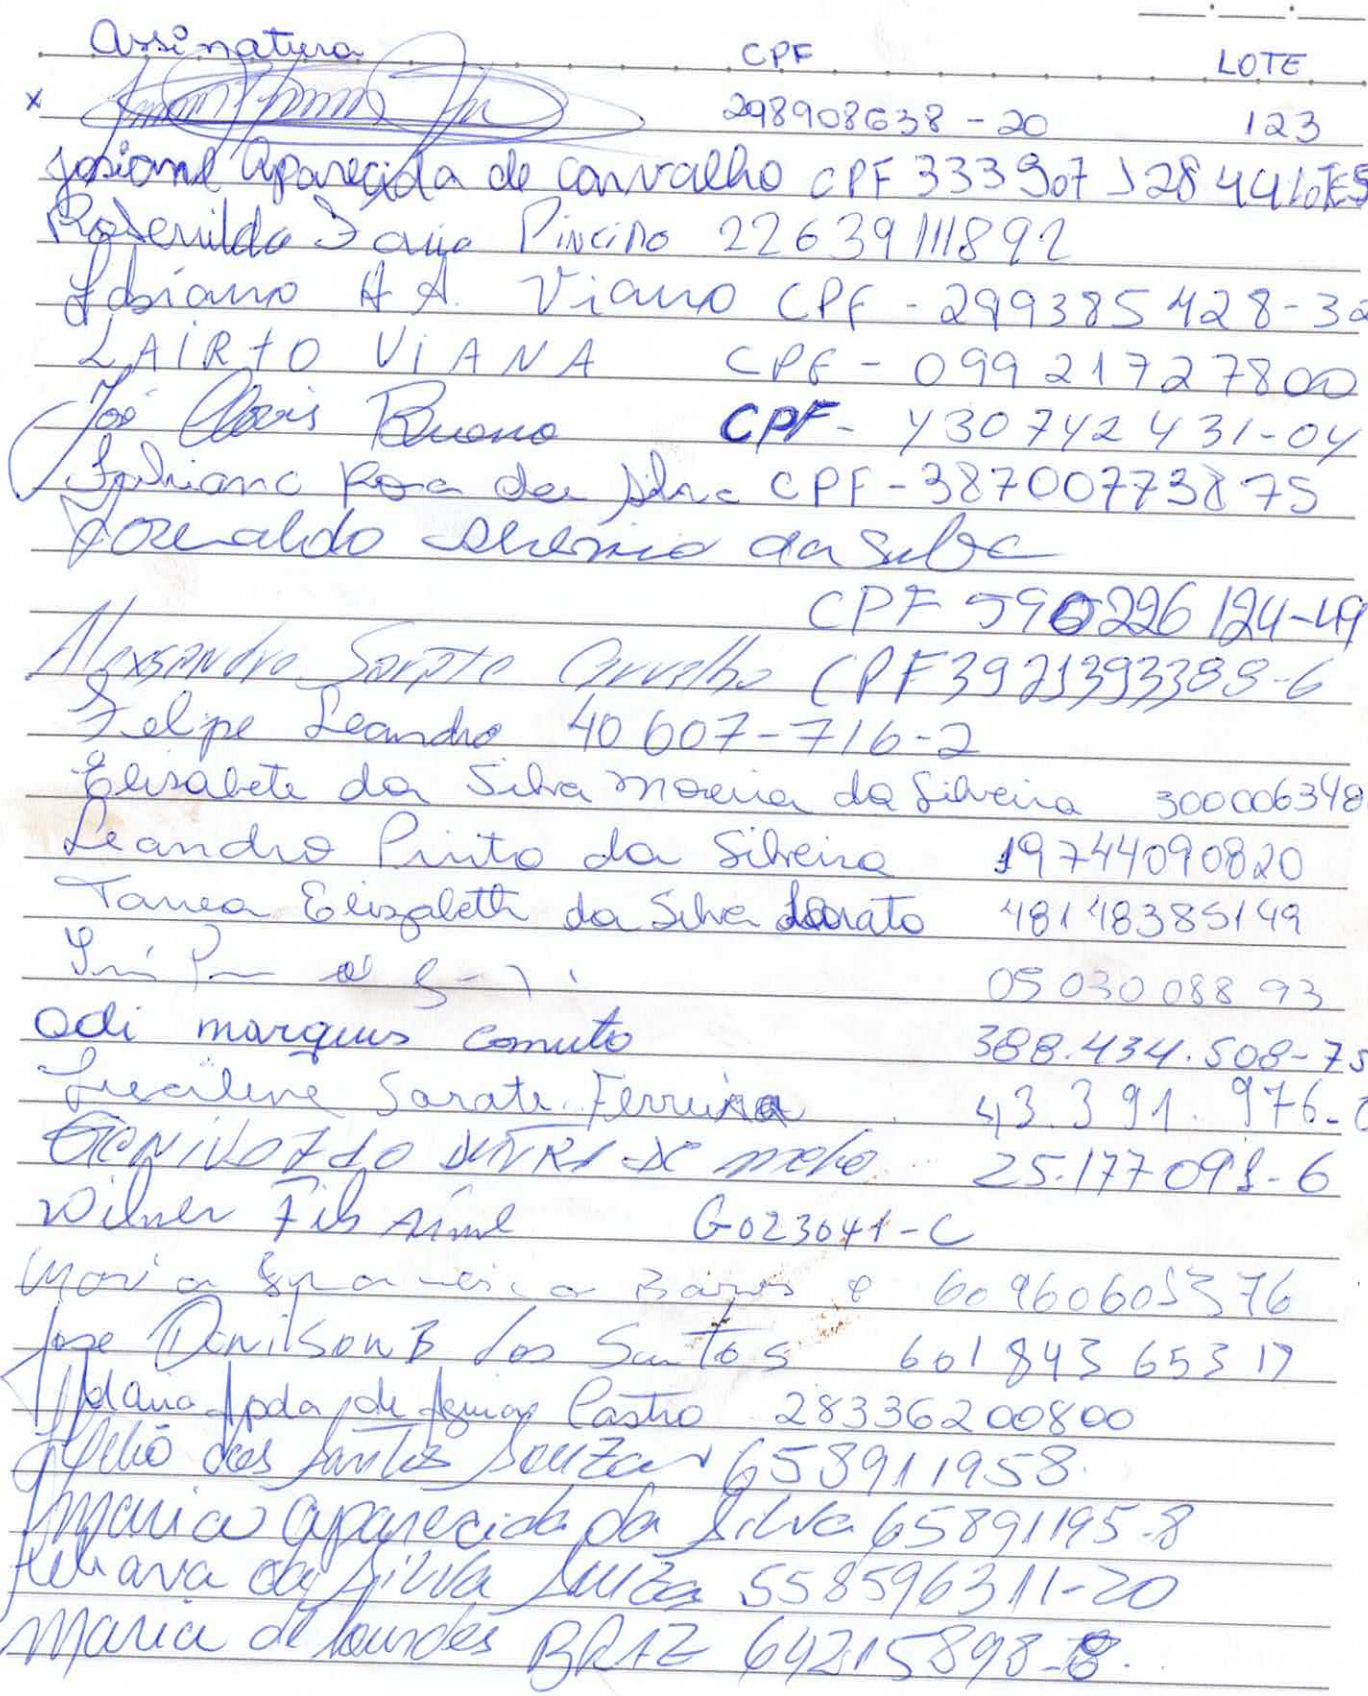 Assinatura CPF LOTE
x 298908638-20 123
Josiane Aparecida de Carvalho CPF 333907128 44 LOTES
Rosenildo 22639111892
Fabiano A A. Viano CPF - 299385428-32
LAIRTO VIANA CPF - 09921727800
José Clovis Bueno CPF - 430742431-04
Fabiano Rosa da Silva CPF - 38700773875
Josenaldo da Silva
CPF 590226124-49
Alexsandro Sarate Carvalho CPF 3921393388-6
Felipe Leandro 40607-716-2
Elisabete da Silva Moreira da Silveira 300006348
Leandro Pinto da Silveira 19744090820
Tania Elizabeth da Silva Sarato 48148385149
05 030 088 93
Odi marques 388.434.508-75
Lucilene Sarate Ferreira 43.391.976-
DUTRA DE melo 25.177.098-6
Wilner Fils Aimé G023041-C
Maria 60960605376
Jose Denilson B dos Santos 601 843 653 17
Adana Apda de Aguiar Castro 28336200800
Helio dos Santos Souza 658911958.
Maria Aparecida da Silva 65891195-8
Juliana da Silva Souza 558596311-20
Maria de Lourdes BRAZ 64215898-8.